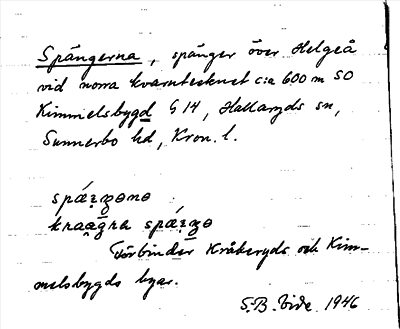 Spängerna, spänger över Helgeå
vid norra kvarntecknet c:a 600 m SO
Kimmelsbygd G 14, Hallaryds sn,
Sunnerbo hd, Kron. l.
Förbinder Kråkeryds och Kim-
melsbygds byar.
S.B. Vide 1946